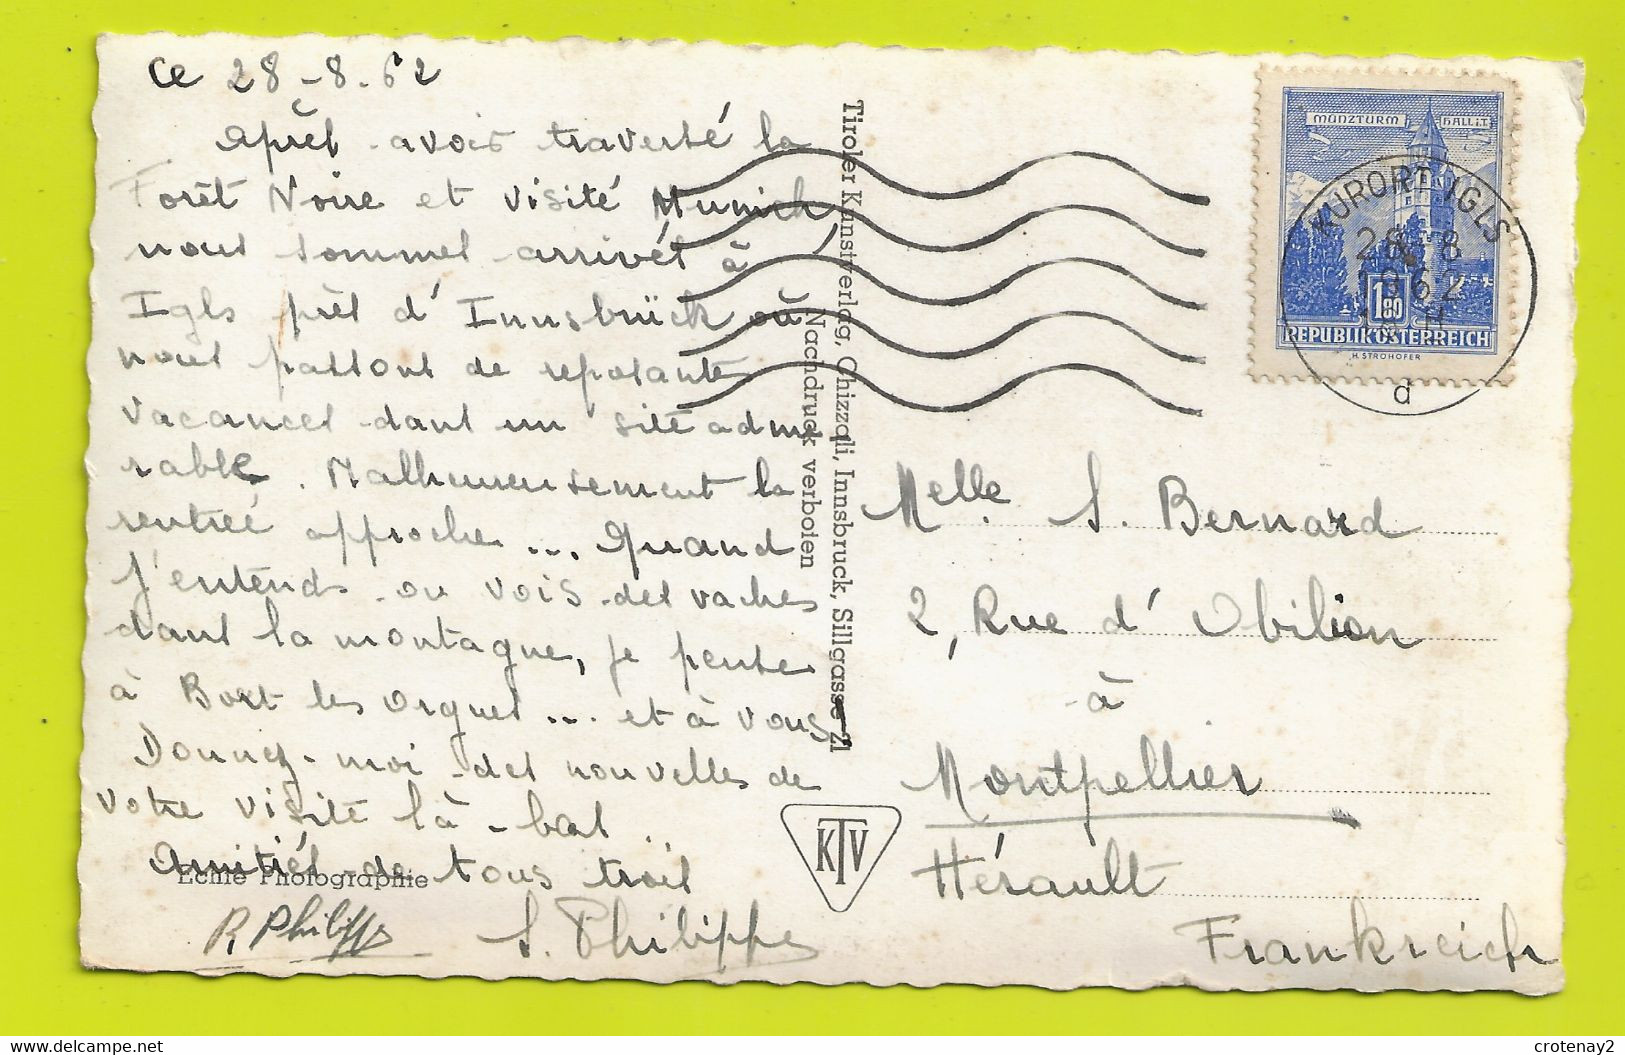 Ce 28-8.62
Après avoir traversé la
Forêt Noire et visité Munich,
nous sommes arrivés à
Igls près d'Innsbrück où
nous passons de reposantes
vacances dans un site admi
rable. Malheureusement la
rentrée approche... Quand
j'entends ou vois des vaches
dans la montagne, je pense
à Bort les Orgues... et à vous
Donnez-moi des nouvelles de
votre visite là-bas.
Amitiés de tous trois
Echte Photographie
R. Philippe S. Philippe
Tiroler Kunstverlag, Chizzali, Innsbruck, Sillgasse 21
Nachdruck verboten
KTV
MÜNZTURM HALL i.T.
1.80
REPUBLIK ÖSTERREICH
H. STROHOFER
KURORT IGLS
28-8
1962
d
Melle. S. Bernard
2, Rue d'Obilion
à
Montpellier
Hérault
Frankreich
crotenay2